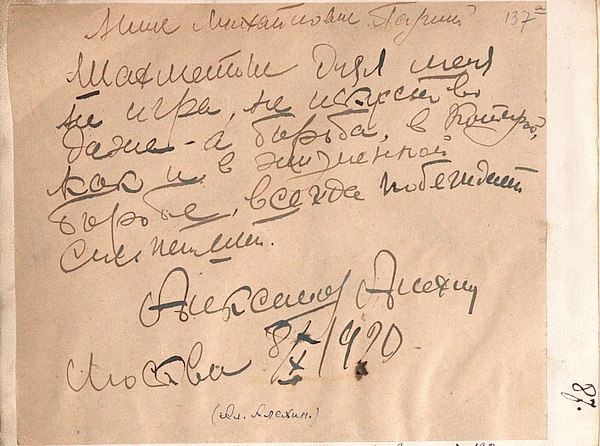 Анне Михайловне 137а
Шахматы для меня
не игра, не искусство
даже - а борьба, в которой,
как и в жизненной
борьбе, всегда побеждает
сильнейший.
Александр Алехин
Москва 8/X 1920
(Ал. Алехин.)
78